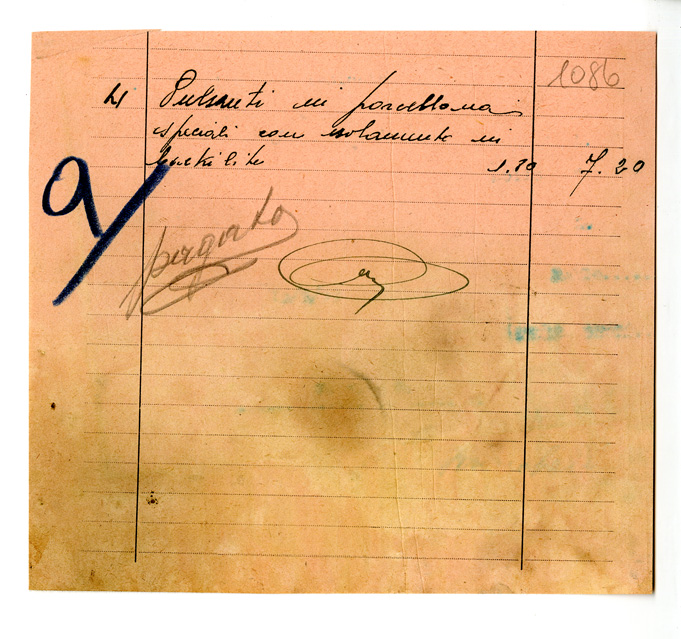 1086
4 Pulsanti in porcellana
speciali con isolamento in
backilite 1.80 7.20
pagato